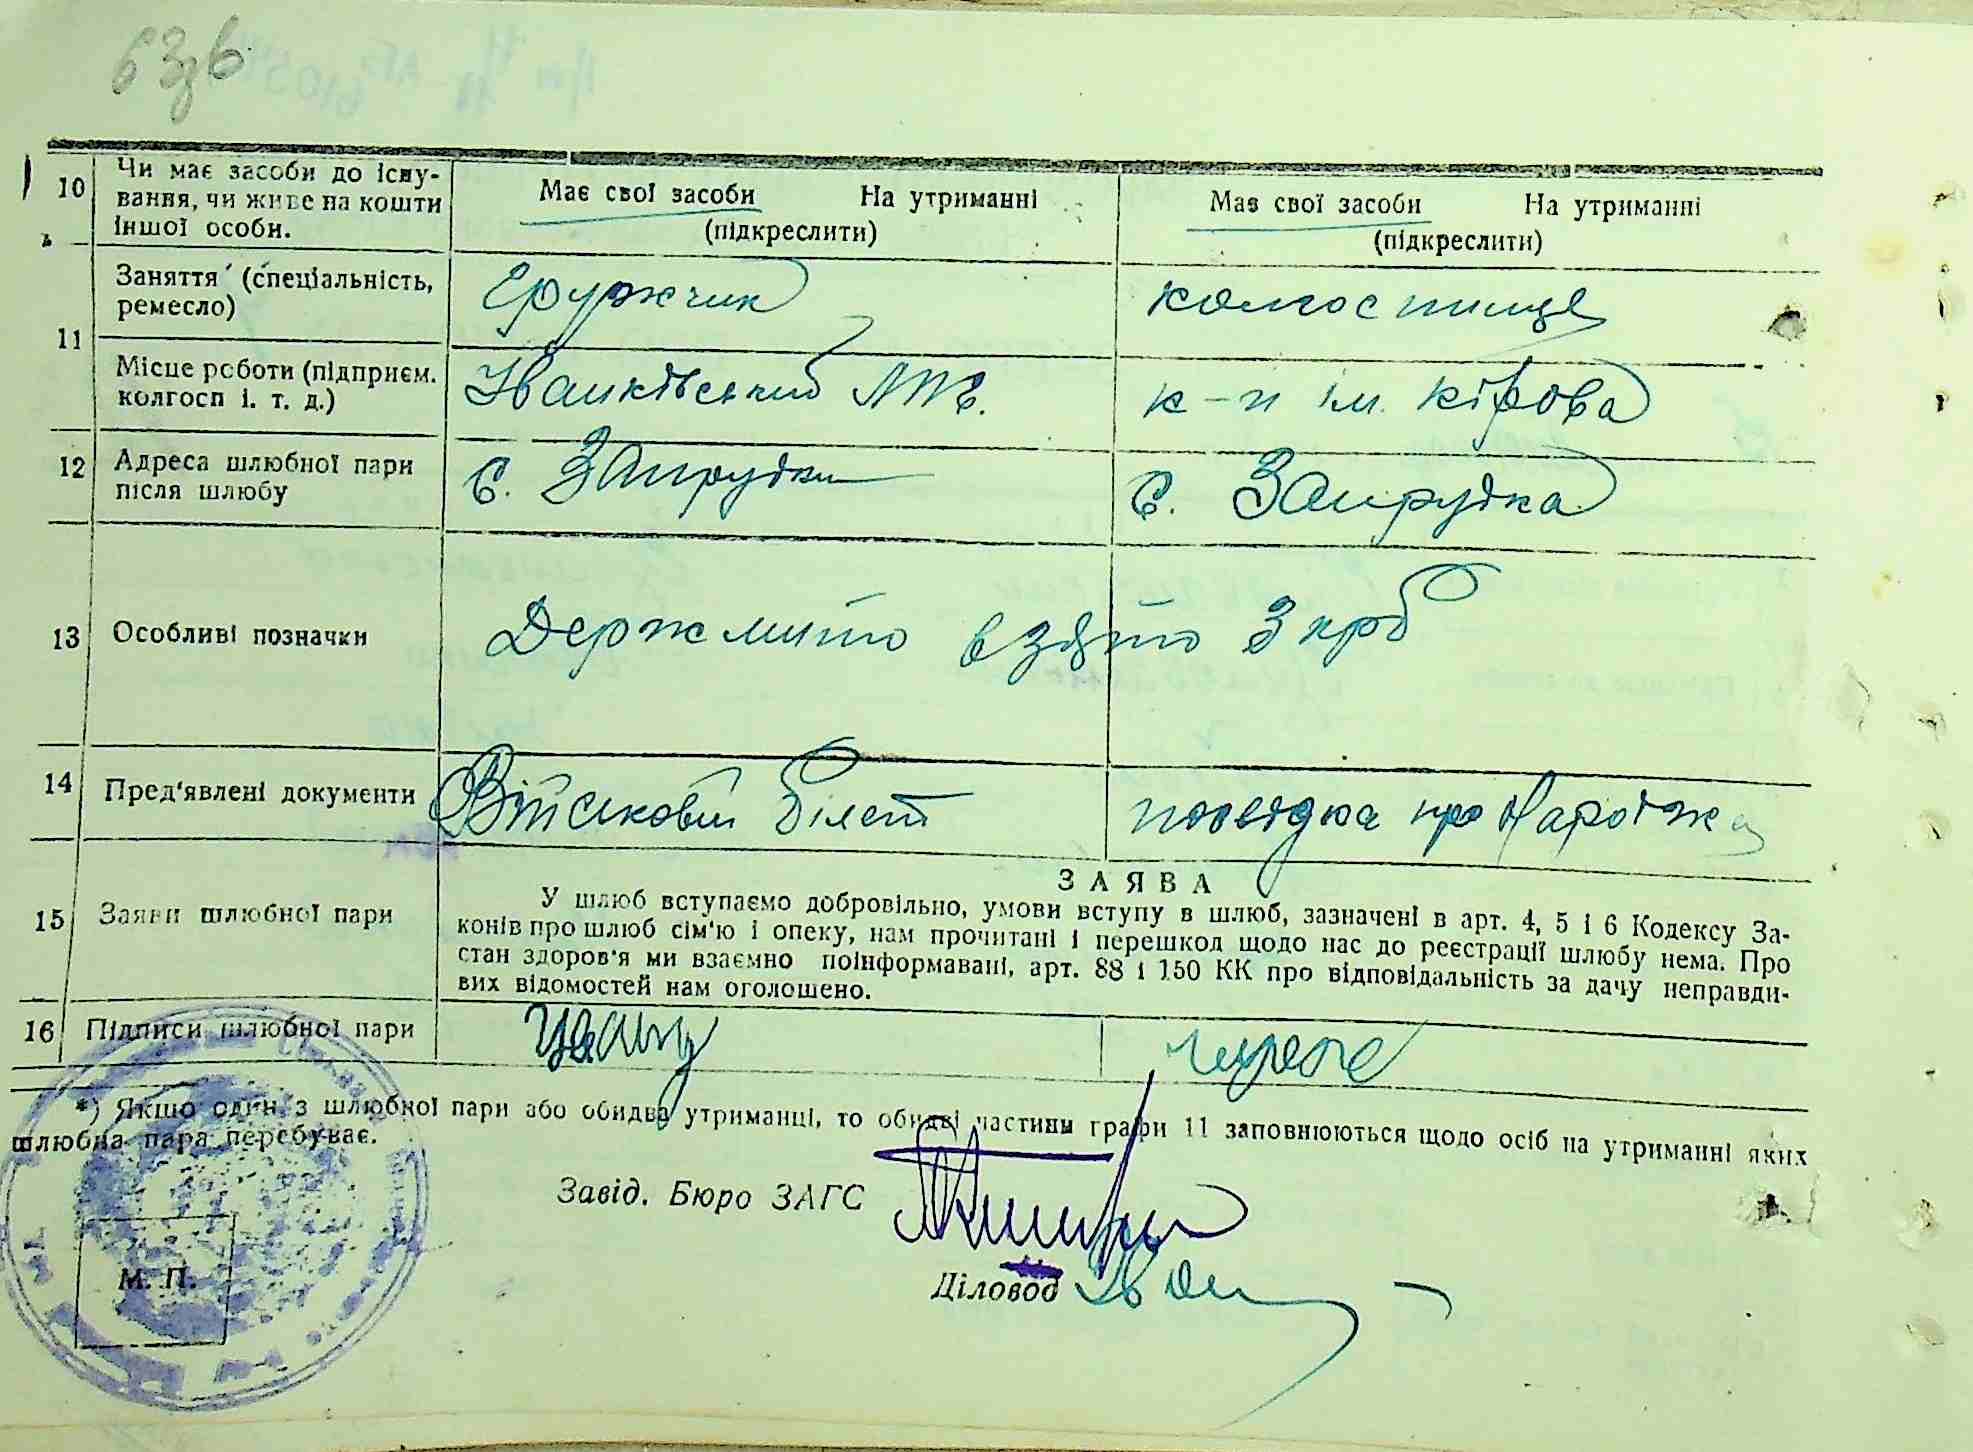 63зв
10 Чи має засоби до існу-
вання, чи живе на кошти
іншої особи.
Має свої засоби На утриманні
(підкреслити)
Має свої засоби На утриманні
(підкреслити)
11 Заняття (спеціальність,
ремесло)
Єружчик
колгоспниця
Місце роботи (підприєм.
колгосп і. т. д.)
Іванківський
к-п ім. Кірова
12 Адреса шлюбної пари
після шлюбу
с. Запрудка
с. Запрудка
13 Особливі позначки
Держмито взято 3 крб
14 Пред'явлені документи
Військовий білет
посвідка про
15 Заяви шлюбної пари
ЗАЯВА
У шлюб вступаємо добровільно, умови вступу в шлюб, зазначені в арт. 4, 5 і 6 Кодексу За-
конів про шлюб сім'ю і опеку, нам прочитані і перешкод щодо нас до реєстрації шлюбу нема. Про
стан здоров'я ми взаємно поінформавані, арт. 88 і 150 КК про відповідальність за дачу неправди-
вих відомостей нам оголошено.
16 Підписи шлюбної пари
*) Якщо один з шлюбної пари або обидва утриманці, то обидві частини графи 11 заповнюються щодо осіб на утриманні яких
шлюбна пара перебуває.
Завід. Бюро ЗАГС
Діловод
М. П.